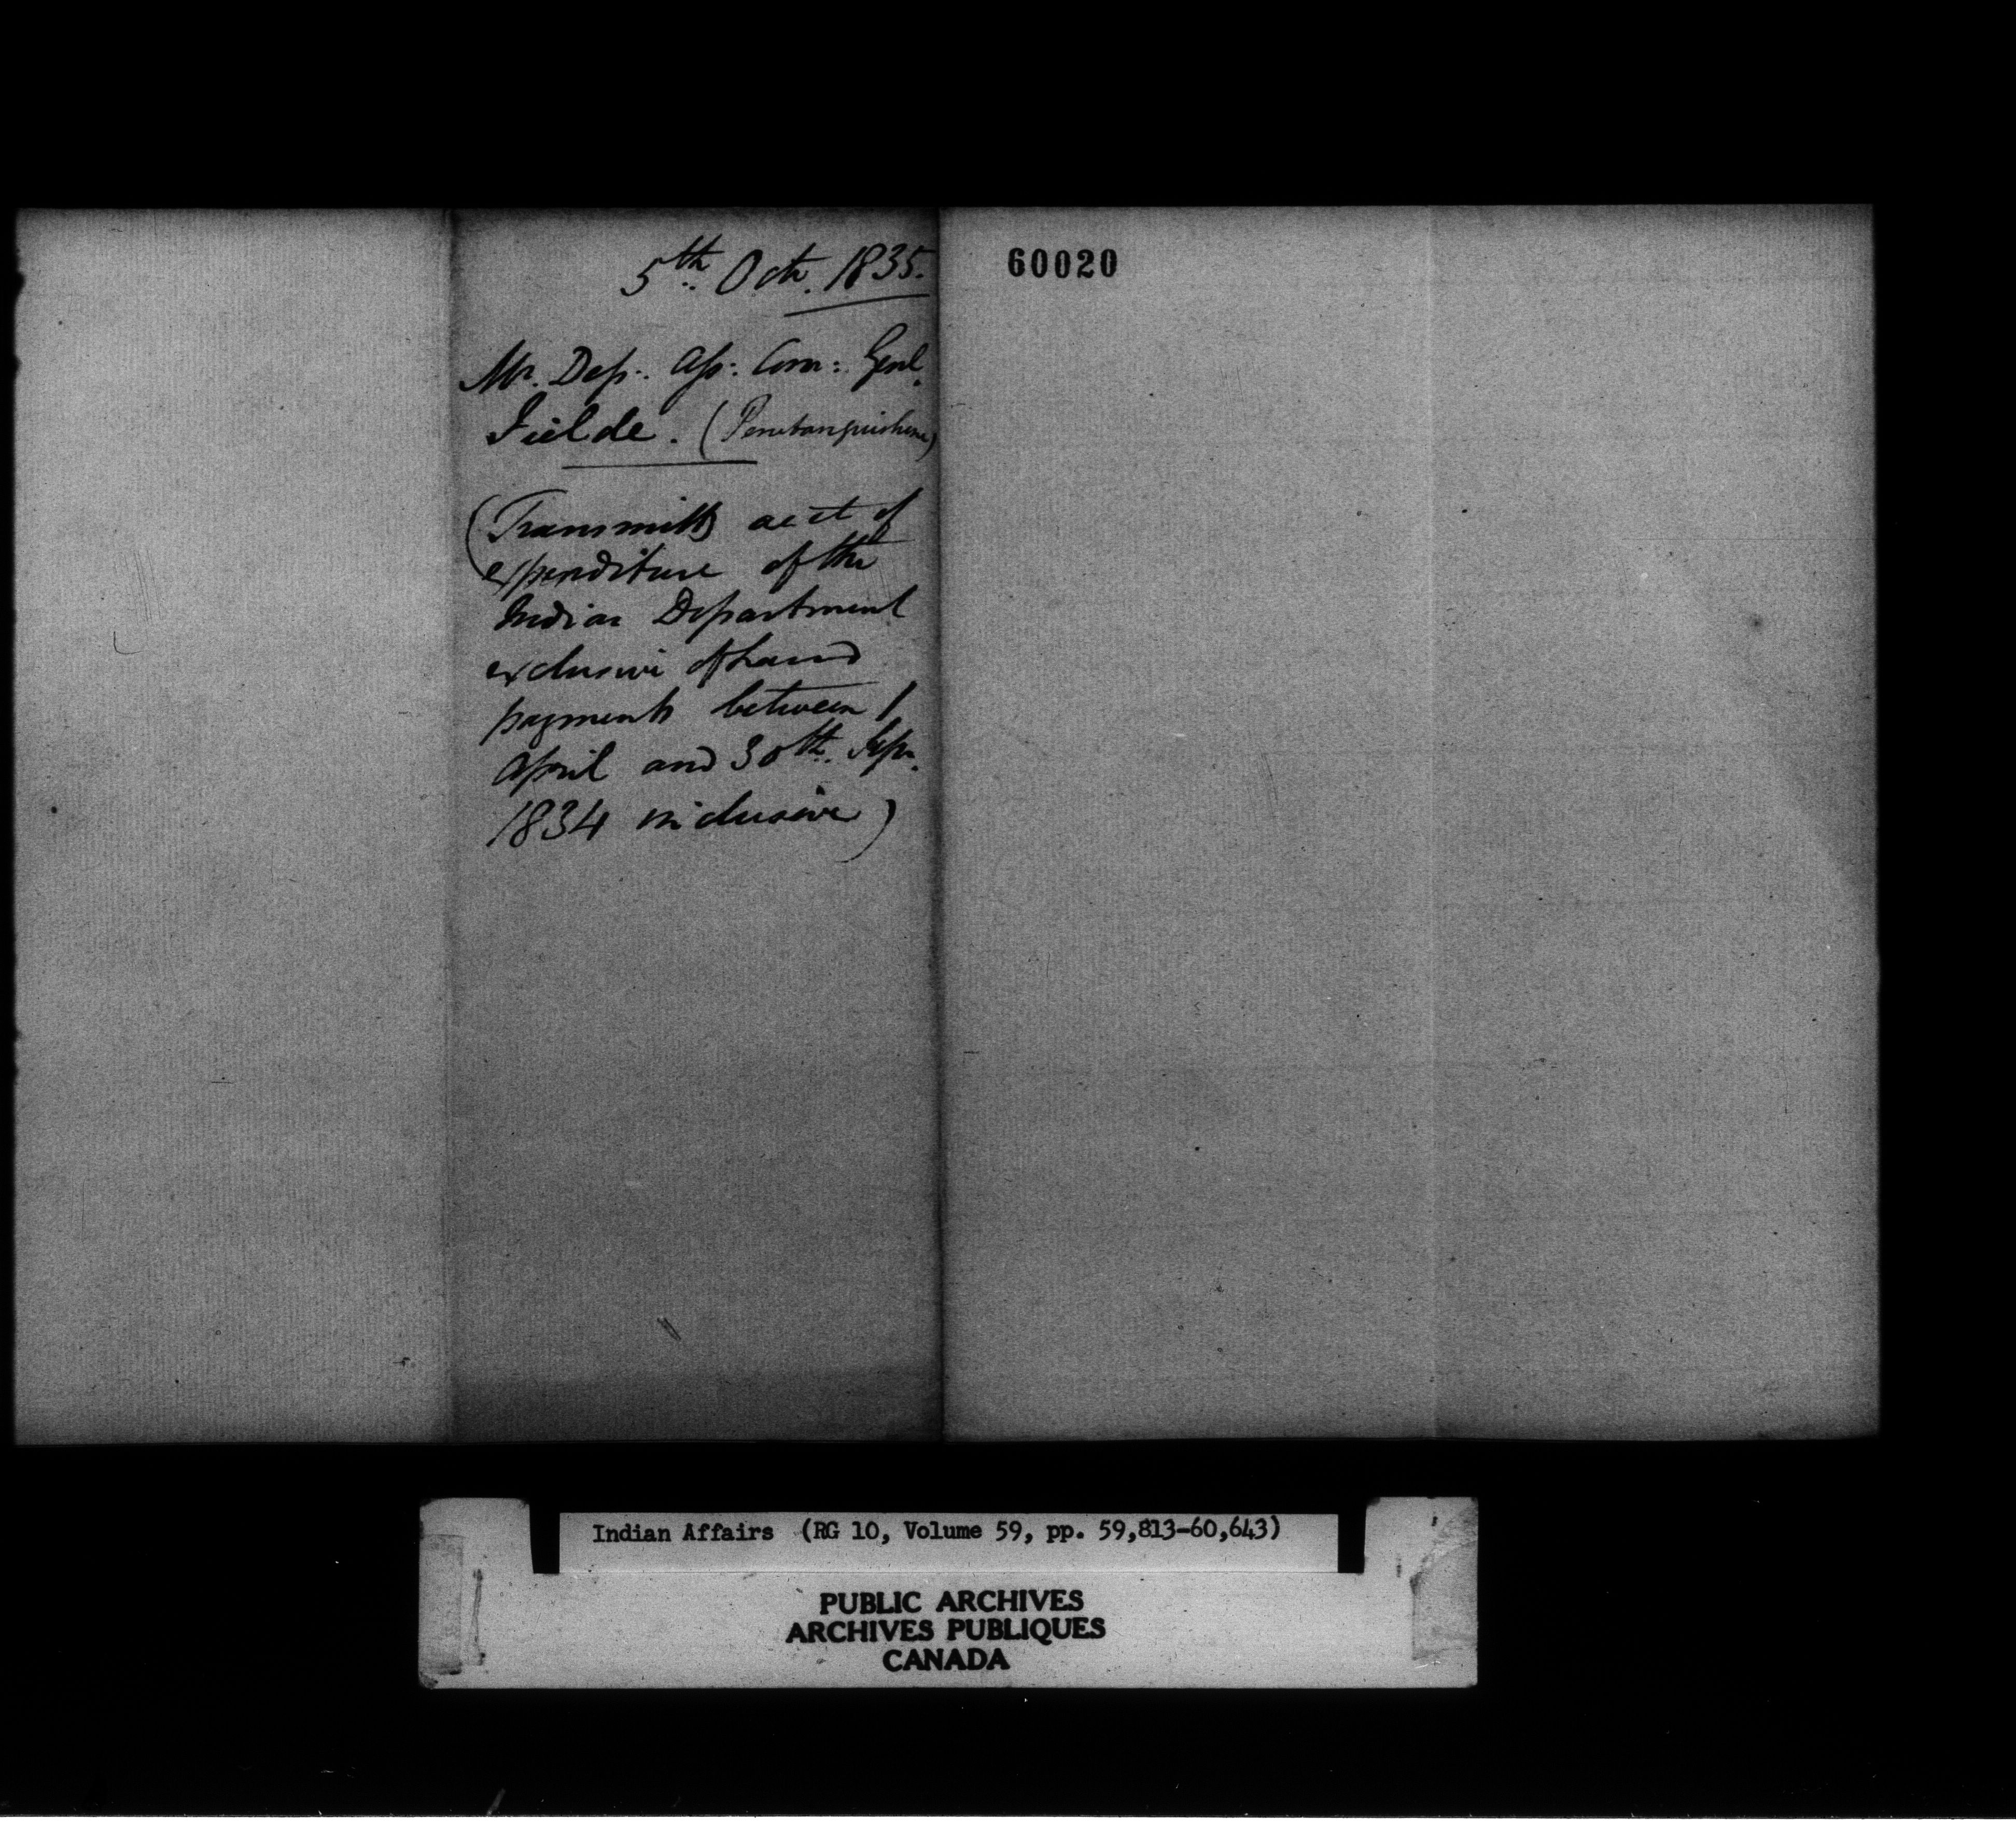 5th Oct. 1835.
Mr. Dep: Ass: Com: Genl.
Fielde. (Penetanguishene)
(Transmitts acct of
expenditure of the
Indian Department
exclusive of Land
payments between 1
April and 30th. Sepr.
1834 inclusive)
60020
Indian Affairs (RG 10, Volume 59, pp. 59,813-60,643)
PUBLIC ARCHIVES
ARCHIVES PUBLIQUES
CANADA